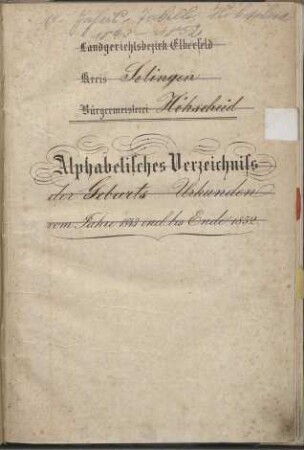 Landgerichtsbezirk Elberfeld
Kreis Solingen
Bürgermeisterei Höhscheid
Alphabetisches Verzeichniss
der Geburts Urkunden
vom Jahre 1843 incl. bis Ende 1852.